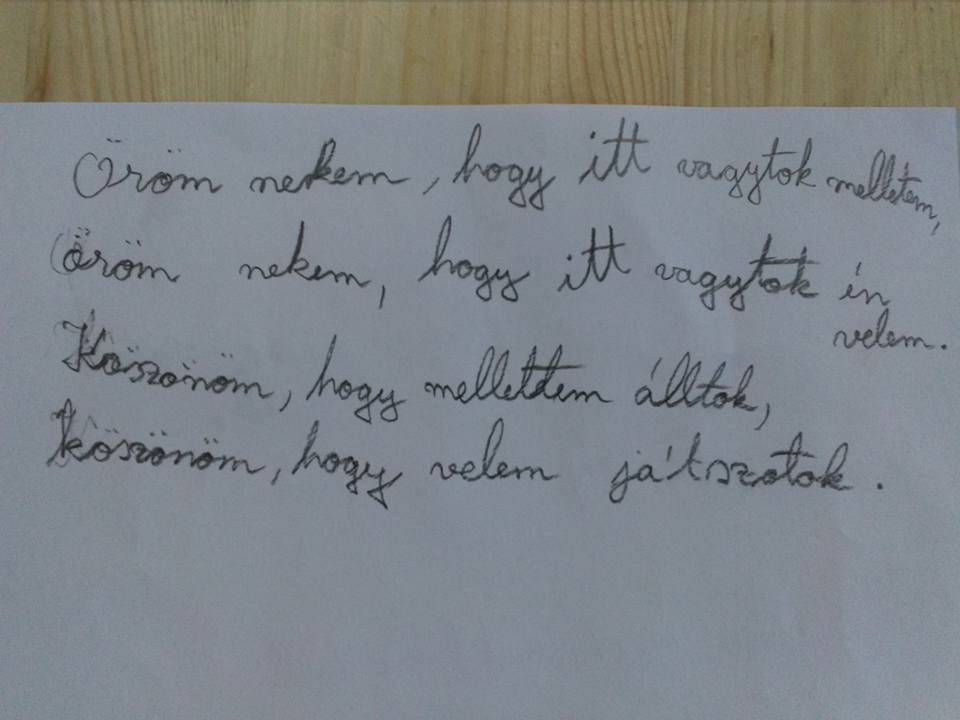 Öröm nekem, hogy itt vagytok melletem,
öröm nekem, hogy itt vagytok én
velem.
Köszönöm, hogy mellettem álltok,
köszönöm, hogy velem játszotok.